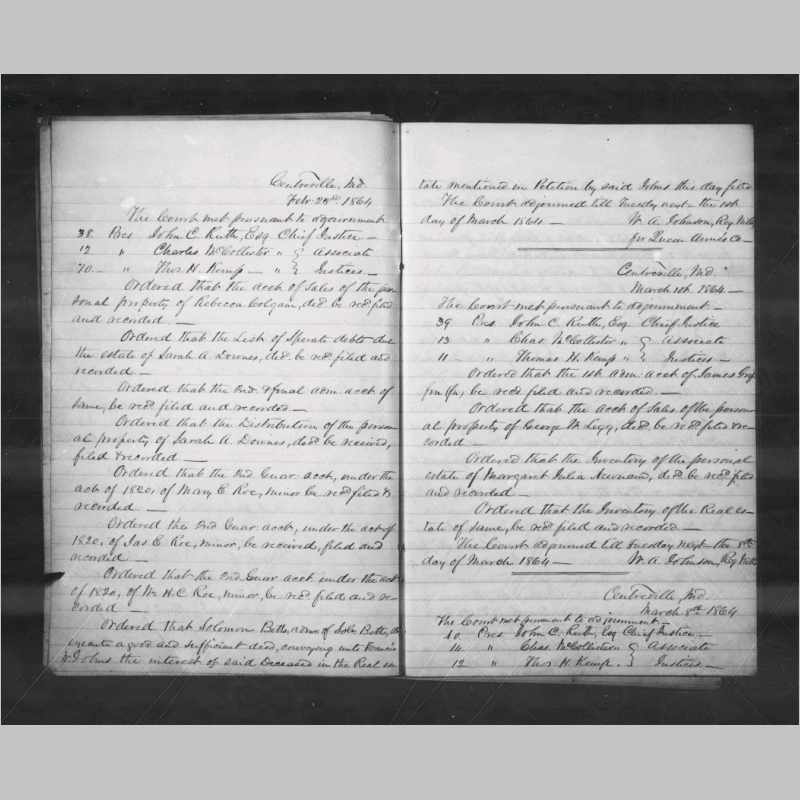 Centreville, Md.
Feby. 1864
The Court met pursuant to adjournment
38. Pres John C. Ruth, Esq. Chief Justice —
12 " Charles McCollister " } Associate
70. — " Thos. H. Kemp — " } Justices —
Ordered that the acct of Sales of the per-
sonal property of Rebecca Colgain, decd. be recd filed
and recorded. —
Ordered that the List of Sperate debts due
the estate of Sarah A Downes, decd. be recd filed and
recorded —
Ordered that the 2nd. & final adm. acct of
same, be recd filed and recorded —
Ordered that the Distribution of the person-
al property of Sarah A. Downes, decd. be received,
filed & recorded —
Ordered that the Guar. acct, under the
act of 1820, of Mary E. Roe, minor be recd filed &
recorded —
Ordered the Guar. acct, under the act of
1820, of Jas E. Roe, minor, be received, filed and
recorded —
Ordered that the Guar acct under the act
of 1820, of Wm H. C. Roe, minor, be recd filed and re-
corded —
Ordered that Solomon Betts, admr. of Betts,
execute a good and sufficient deed, conveying unto Francis
Johns the interest of said Deceased in the Real es-
tate mentioned in Petition by said Johns this day filed
The Court adjourned till Tuesday next the 1st
day of March 1864 — W. A. Johnson, Reg Wills
for Queen Anne's Co —
Centreville, Md.
March 1st. 1864. —
The Court met pursuant to adjournment —
39 Pres John C. Ruth, Esq Chief Justice
13 " Chas McCollister " } Associate
11 " Thomas H. Kemp " } Justices —
Ordered that the 1st. adm. acct of James Grif-
fin be recd filed and recorded —
Ordered that the acct of Sales of the person-
al property of George W Legg, decd. be recd filed & re-
corded —
Ordered that the Inventory of the personal
estate of Margaret Julia decd. be recd filed
and recorded —
Ordered that the Inventory of the Real es-
tate of same, be recd filed and recorded —
The Court adjourned till Tuesday next the 8th
day of March 1864 — W. A. Johnson, Reg Wills
Centreville, Md.
March 8th 1864
The Court met pursuant to adjournment —
40 Pres John C. Ruth, Esq Chief Justice —
14 " Chas McCollister } Associate
12 " Thos. H. Kemp. } Justices —